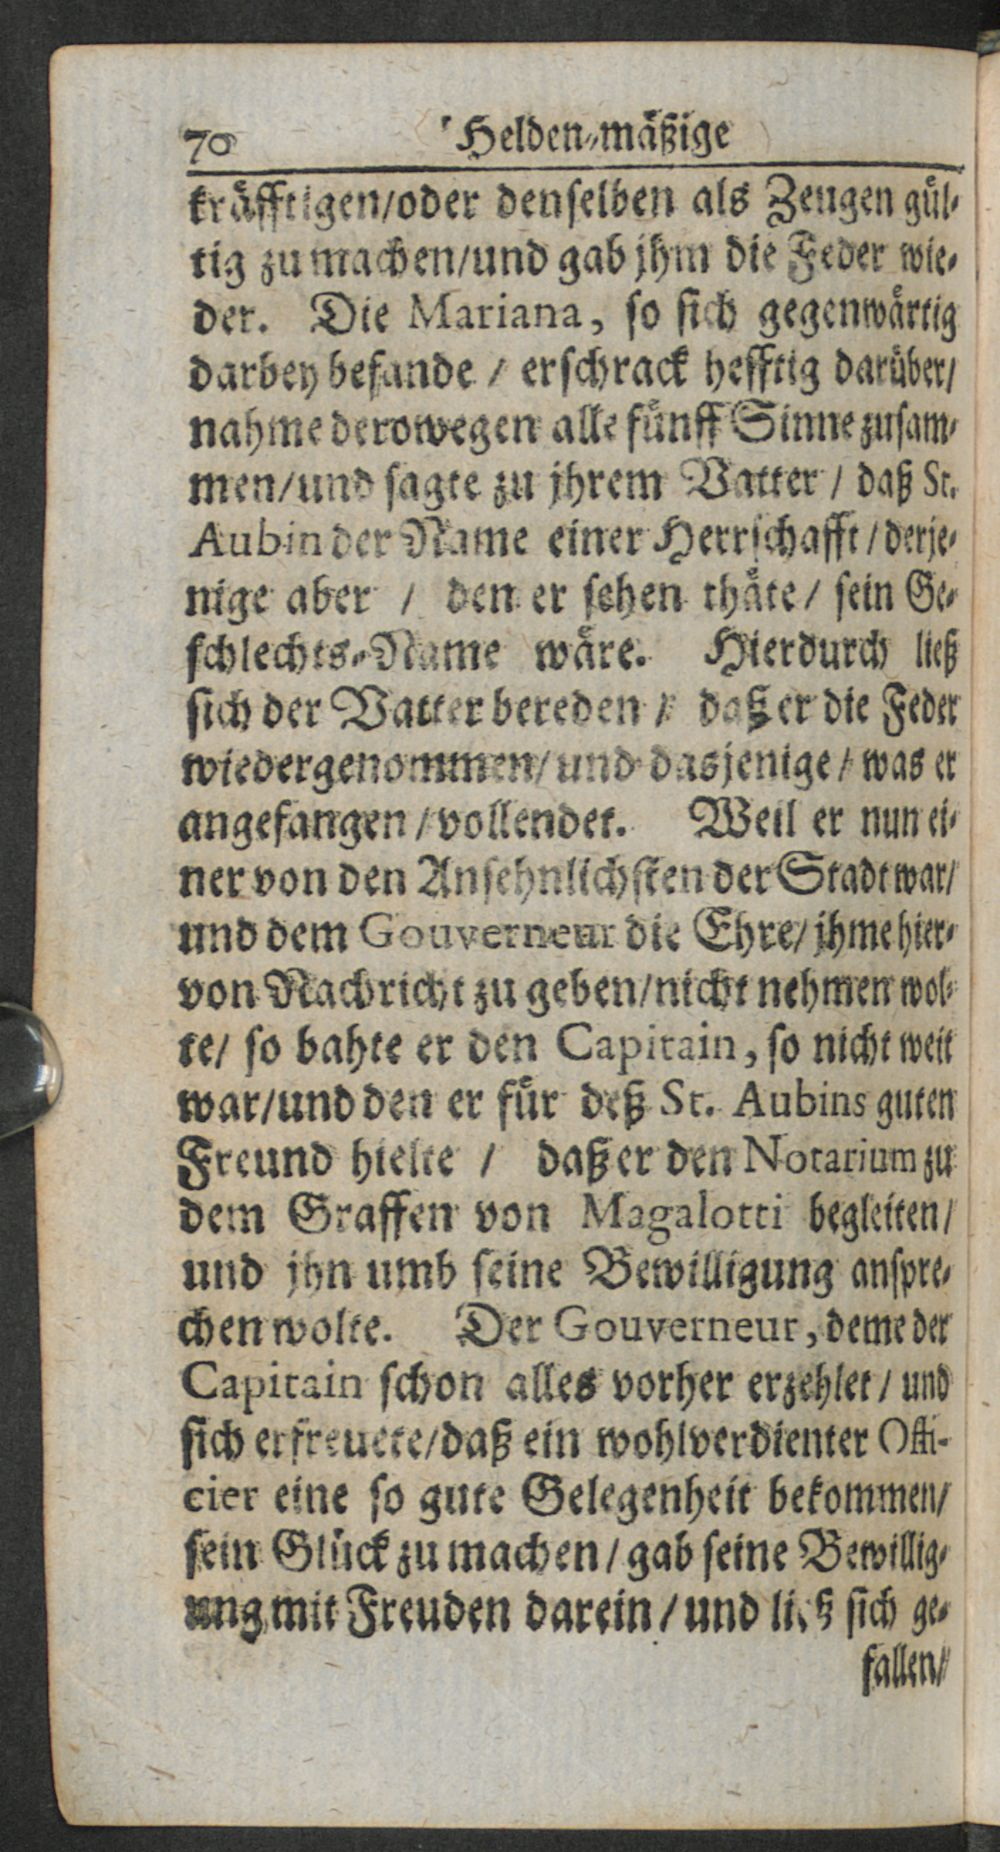 70 Helden-mäßige
kräfftigen/oder denselben als Zeugen gül-
tig zu machen/und gab jhm die Feder wie-
der. Die Mariana, so sich gegenwärtig
darbey befande / erschrack hefftig darüber/
nahme derowegen alle fünff Sinne zusam-
men/und sagte zu jhrem Vatter / daß St.
Aubin der Name einer Herrschafft / derje-
nige aber / den er sehen thäte / sein Ge-
schlechts-Name wäre. Hierdurch ließ
sich der Vatter bereden / daß er die Feder
wiedergenommen/und dasjenige / was er
angefangen / vollendet. Weil er nun ei-
ner von den Ansehnlichsten der Stadt war/
und dem Gouverneur die Ehre/ jhme hier-
von Nachricht zu geben/nicht nehmen wol-
te/ so bahte er den Capitain, so nicht weit
war/und den er für deß St. Aubins guten
Freund hielte / daß er den Notarium zu
dem Graffen von Magalotti begleiten/
und jhn umb seine Bewilligung anspre-
chen wolte. Der Gouverneur, deme der
Capitain schon alles vorher erzehlet / und
sich erfreuete/daß ein wohlverdienter Offi-
cier eine so gute Gelegenheit bekommen/
sein Glück zu machen / gab seine Bewillig-
ung mit Freuden darein / und ließ sich ge-
fallen/